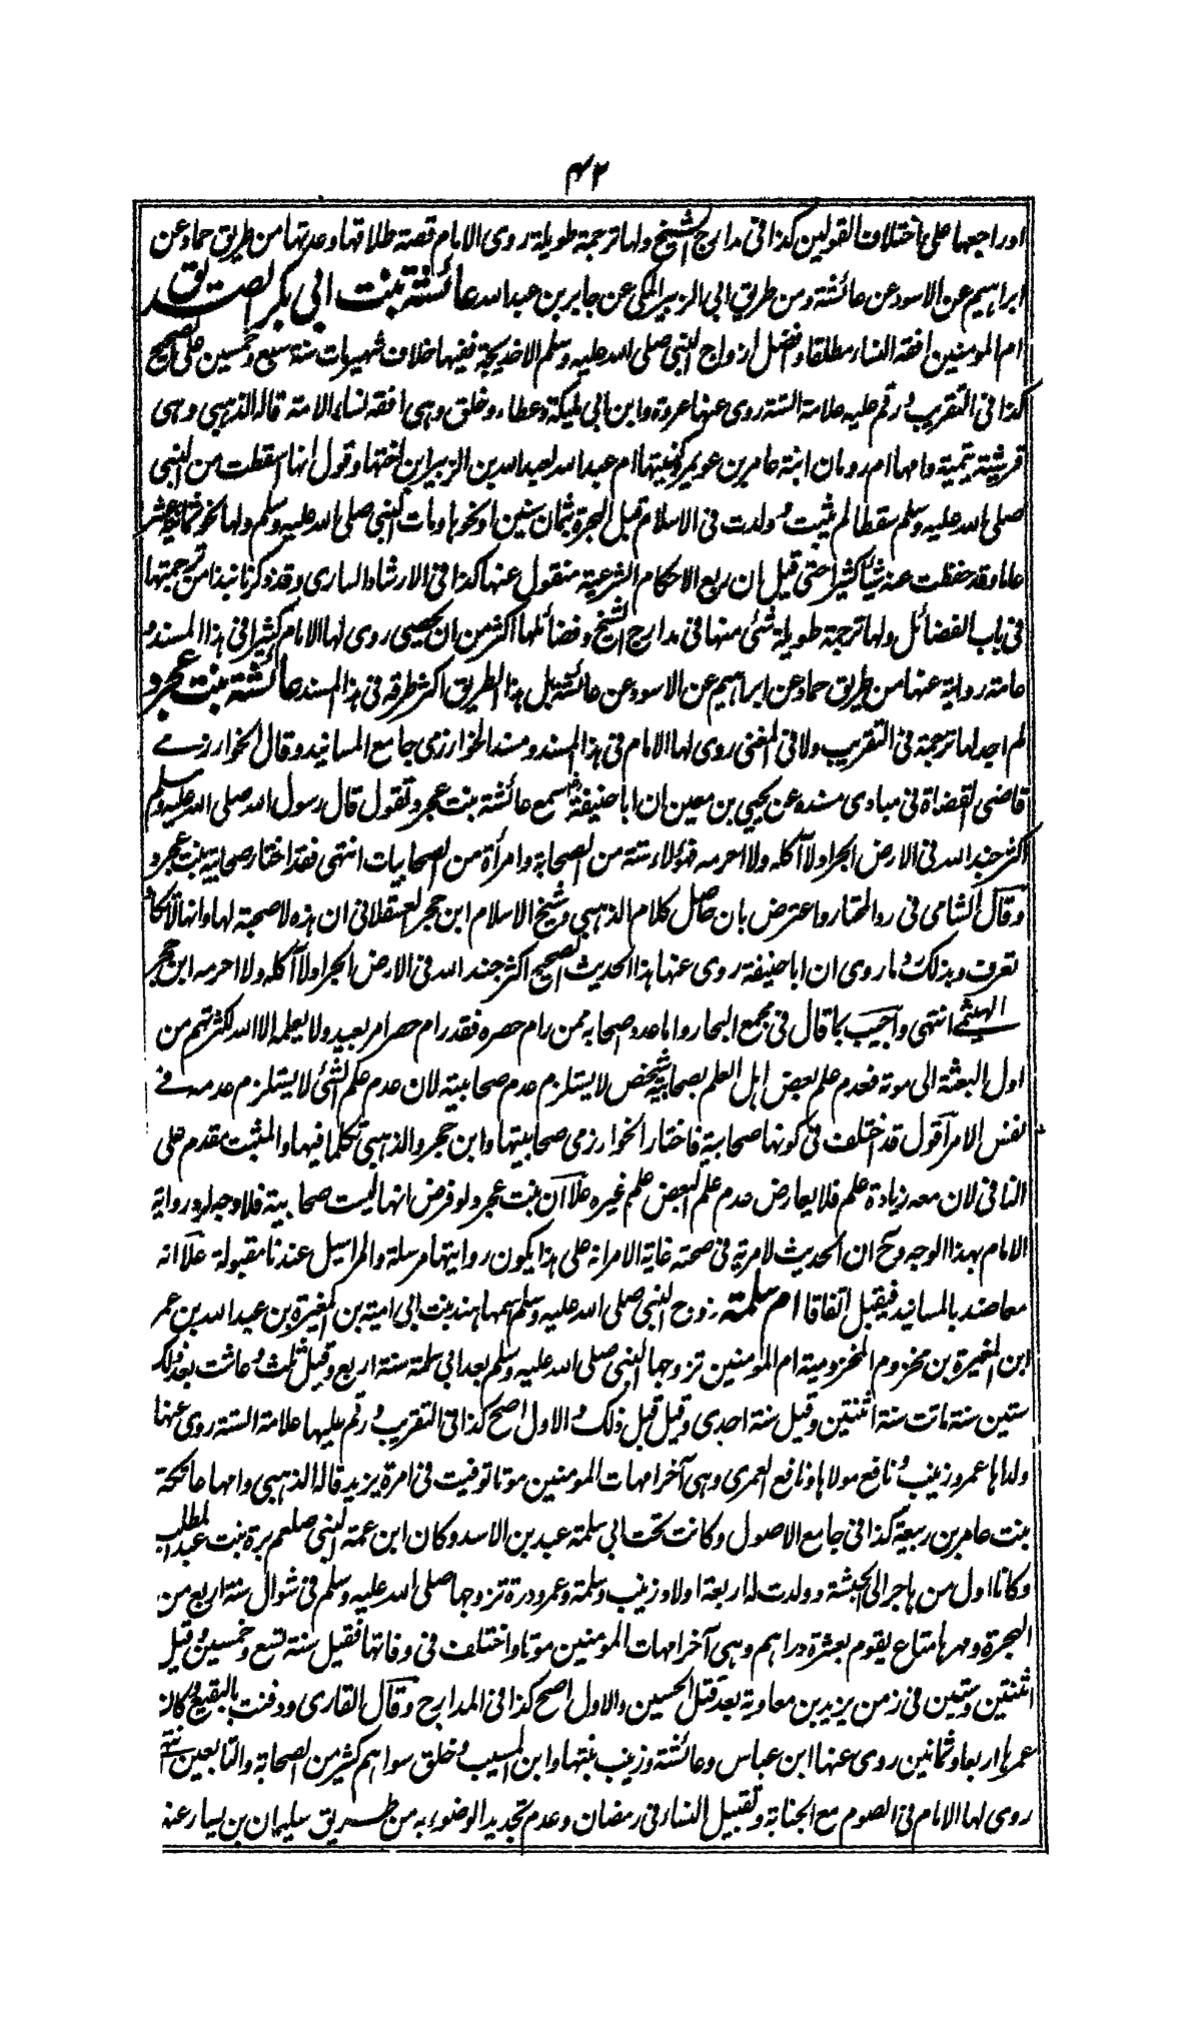 ۴۲
او راجعها على اختلاف القولين كذا فى مدارج الشيخ ولها ترجمة طويلة روى الامام قصة طلاقها وعدتها من طريق حماد عن
ابراهيم عن الاسود عن عائشة ومن طريق ابى الزبير المكى عن جابر بن عبد الله عائشة بنت ابى بكر الصديق
ام المومنين افقه النساء مطلقا وافضل ازواج النبى صلى الله عليه وسلم الا خديجة ففيها خلاف شهير مات سنة سبع وخمسين على الصحيح
كذا فى التقريب ورقم عليه علامة الستة روى عنها عروة وابن ابى مليكة وعطاء وخلق وهى افقه نساء الامة قاله الذهبى وهى
قرشية تيمية وامها ام رومان ابنة عامر بن عويمر وكنيتها ام عبد الله لعبد الله بن الزبير ابن اختها وقول انها اسقطت من النبى
صلى الله عليه وسلم سقطا لم يثبت وولدت فى الاسلام قبل الهجرة بثمان سنين او نحوها ومات النبى صلى الله عليه وسلم ولها نحو ثمانية عشر
عاما وقد حفظت عنه شيئا كثيرا حتى قيل ان ربع الاحكام الشرعية منقول عنها كذا فى الارشاد السارى وقد ذكرنا نبذا من ترجمتها
فى باب الفضائل ولها ترجمة طويلة شئى منها فى مدارج الشيخ وفضائلها اكثر من ان يحصى روى لها الامام كثيرا فى هذا المسند و
عامته رواية عنها من طريق حماد عن ابراهيم عن الاسود عن عائشة بل هذا الطريق اكثر طرقه فى هذا المسند عائشة بنت عجرد
لم اجد لها ترجمة فى التقريب ولا فى المغنى روى لها الامام فى هذا المسند ومسند الخوارزمى جامع المسانيد وقال الخوارزمے
قاضى القضاة فى مبادى مسنده عن يحيى بن معين ان ابا حنيفة سمع عائشة بنت عجرد تقول قال رسول الله صلى الله عليه وسلم
اكثر جند الله فى الارض الجراد لا آكله ولا احرمه فهؤلاء ستة من الصحابة وامرأة من الصحابيات انتهى فقد اختار صحابية بنت عجرد
وقال الشامى فى رد المختار واعترض بان حاصل كلام الذهبى وشيخ الاسلام ابن حجر العسقلانى ان هذه لا صحبة لها وانها لا تكاد
تعرف وبذلك رد ما روى ان ابا حنيفة روى عنها هذا الحديث الصحيح اكثر جند الله فى الارض الجراد لا آكله ولا احرمه ابن حجر
الهيثمے انتهى واجيب بما قال فى مجمع البحار واما عدد صحابه فمن رام حصره فقد رام حصر امر بعيد ولا يعلمه الا الله لكثرتهم من
اول البعثة الى موته فعدم علم بعض اهل العلم بصحابية شخص لا يستلزم عدم صحابيته لان عدم علم الشئ لا يستلزم عدمه فے
نفس الامر اقول قد اختلف فى كونها صحابية فاختار الخوارزمى صحابيتها وابن حجر والذهبى تكلما فيها والمثبت مقدم على
النافى لان معه زيادة علم فلا يعارض عدم علم البعض علم غيره علا ان بنت عجرد لو فرض انها ليست صحابية فلا وجه لرد رواية
الامام بهذا الوجه وح ان الحديث لا مرية فى صحته غاية الامر انه على هذا يكون روايتها مرسلة والمراسيل عندنا مقبولة علا انه
معاضد بالمسانيد فيقبل اتفاقا ام سلمة زوج النبى صلى الله عليه وسلم اسمها هند بنت ابى امية بن المغيرة بن عبد الله بن عمر
ابن المغيرة بن مخزوم المخزومية ام المومنين تزوجها النبى صلى الله عليه وسلم بعد ابى سلمة سنة اربع وقيل ثلث وعاشت بعد ذلك
ستين سنة ماتت سنة اثنتين وقيل سنة احدى وقيل قبل ذلك والاول اصح كذا فى التقريب ورقم عليها علامة الستة روى عنها
ولداها عمر وزينب ونافع مولاها ونافع العمرى وهى آخر امهات المومنين موتا توفيت فى امرة يزيد قاله الذهبى وامها عاتكة
بنت عامر بن ربيعة كذا فى جامع الاصول وكانت تحت ابى سلمة عبد بن الاسد وكان ابن عمة النبى صلعم برة بنت عبد المطلب
وكانا اول من هاجر الى الحبشة وولدت له اربعة اولاد زينب وسلمة وعمر ودرة تزوجها صلى الله عليه وسلم فى شوال سنة اربع من
الهجرة ومهرها متاع يقوم بعشرة دراهم وهى آخر امهات المومنين موتا واختلف فى وفاتها فقيل سنة تسع وخمسين وقيل
اثنتين وستين فى زمن يزيد بن معاوية بعد قتل الحسين والاول اصح كذا فى المدارج وقال القارى ودفنت بالبقيع وكان
عمرها اربعا وثمانين روى عنها ابن عباس وعائشة وزينب بنتها وابن المسيب وخلق سواهم كثير من الصحابة والتابعين انتهى
روى لها الامام فى الصوم مع الجنابة وتقبيل النساء فى رمضان وعدم تجديد الوضوء به من طريق سليمان بن يسار عنه